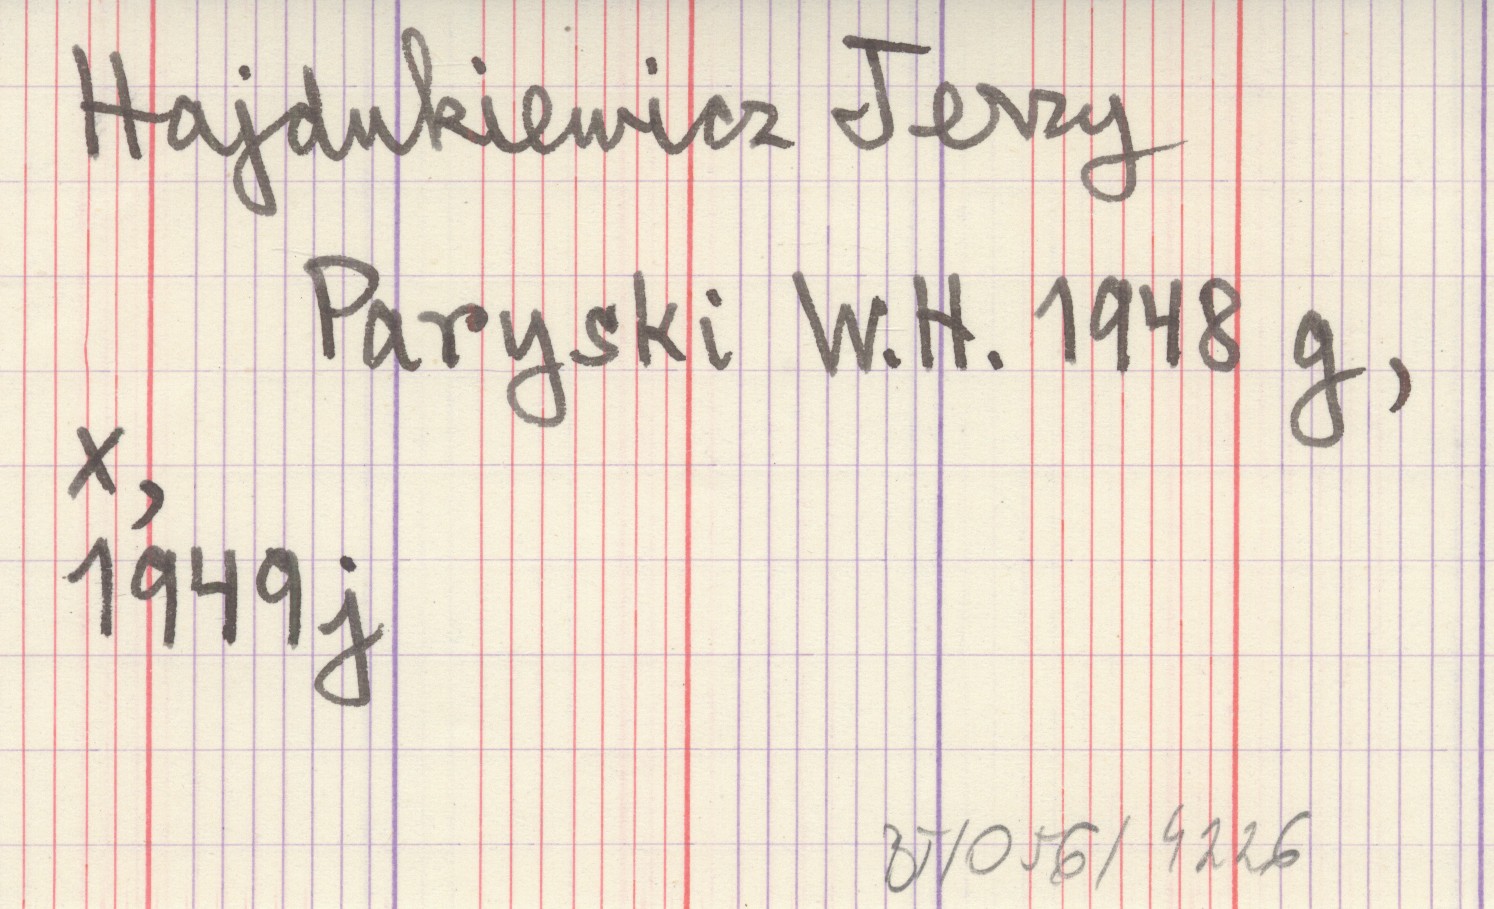 Hajdukiewicz Jerzy
Paryski W.H. 1948 g,
x,
1949j
BJ/056/4226